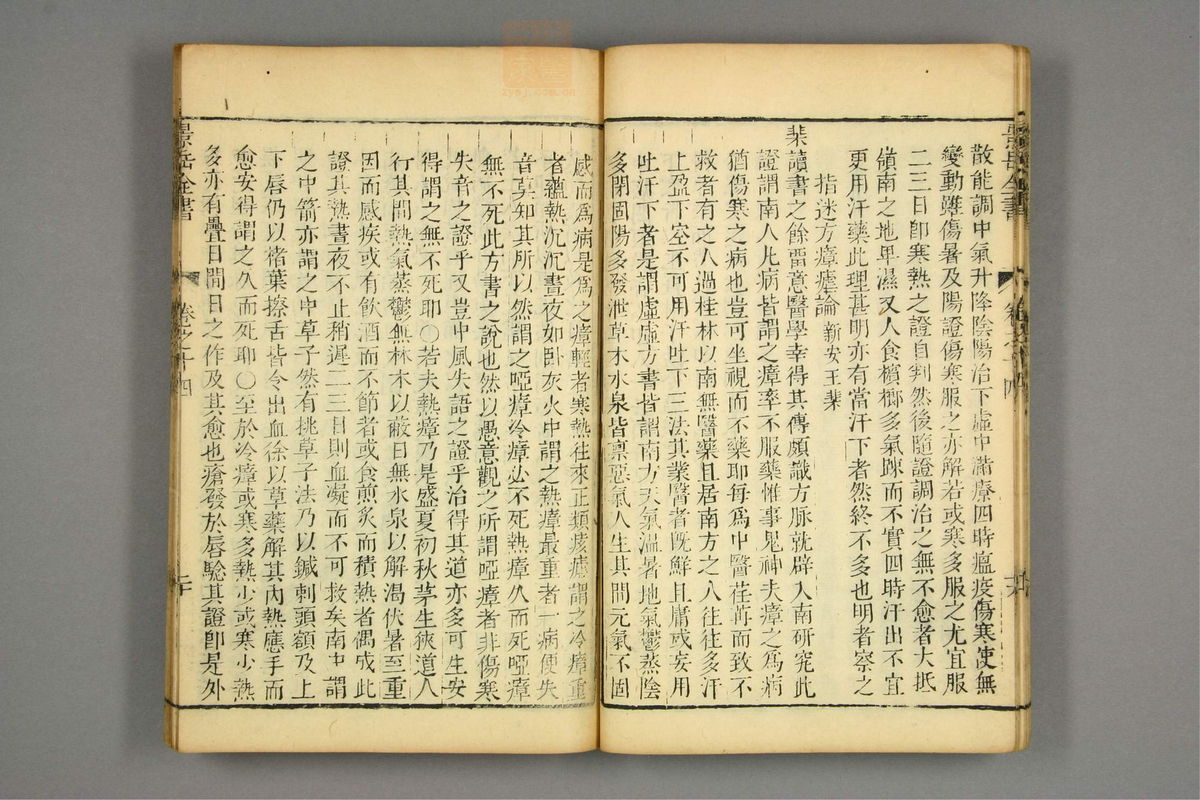 散能調中氣升降陰陽治下虛中瀟療四時瘟疫傷寒使無
變動雖傷暑及陽證傷寒服之亦解若或寒多服之尤宜服
二三日卽寒熱之證自判然後隨證調治之無不愈者大抵
嶺南之地卑濕又人食檳榔多氣踈而不實四時汗出不宜
更用汗藥此理甚明亦有當汗下者然終不多也明者察之
指迷方瘴瘧論 新安王棐
棐讀書之餘畱意醫學幸得其傳頗識方脉就辟入南研究此
證謂南人凡病皆謂之瘴率不服藥惟事鬼神夫瘴之爲病
猶傷寒之病也豈可坐視而不藥耶每爲中醫荏苒而致不
救者有之人過桂林以南無醫藥且居南方之人往往多汗
上盈下空不可用汗吐下三法其業醫者旣鮮且庸或妄用
吐汗下者是謂虛虛方書皆謂南方天氣溫暑地氣鬱蒸陰
多閉固陽多發泄草木水泉皆禀惡氣人生其間元氣不固
感而爲病是爲之瘴輕者寒熱往來正類痎瘧謂之冷瘴重
者蘊熱沉沉晝夜如卧灰火中謂之熱瘴最重者一病便失
音莫知其所以然謂之啞瘴冷瘴必不死熱瘴久而死啞瘴
無不死此方書之說也然以愚意觀之所謂啞瘴者非傷寒
失音之證乎又豈中風失語之證乎治得其道亦多可生安
得謂之無不死耶○若夫熱瘴乃是盛夏初秋茅生狹道人
行其間熱氣蒸鬱無林木以蔽日無水泉以解渴伏暑至重
因而感疾或有飲酒而不節者或食煎炙而積熱者偶成此
證其熱晝夜不止稍遲二三日則血凝而不可救矣南中謂
之中箭亦謂之中草子然有挑草子法乃以鍼刺頭額及上
下唇仍以楮葉擦舌皆令出血徐以草藥解其內熱應手而
愈安得謂之久而死耶○至於冷瘴或寒多熱少或寒少熱
多亦有疊日間日之作及其愈也瘡發於唇驗其證卽是外
景岳全書
卷之十四